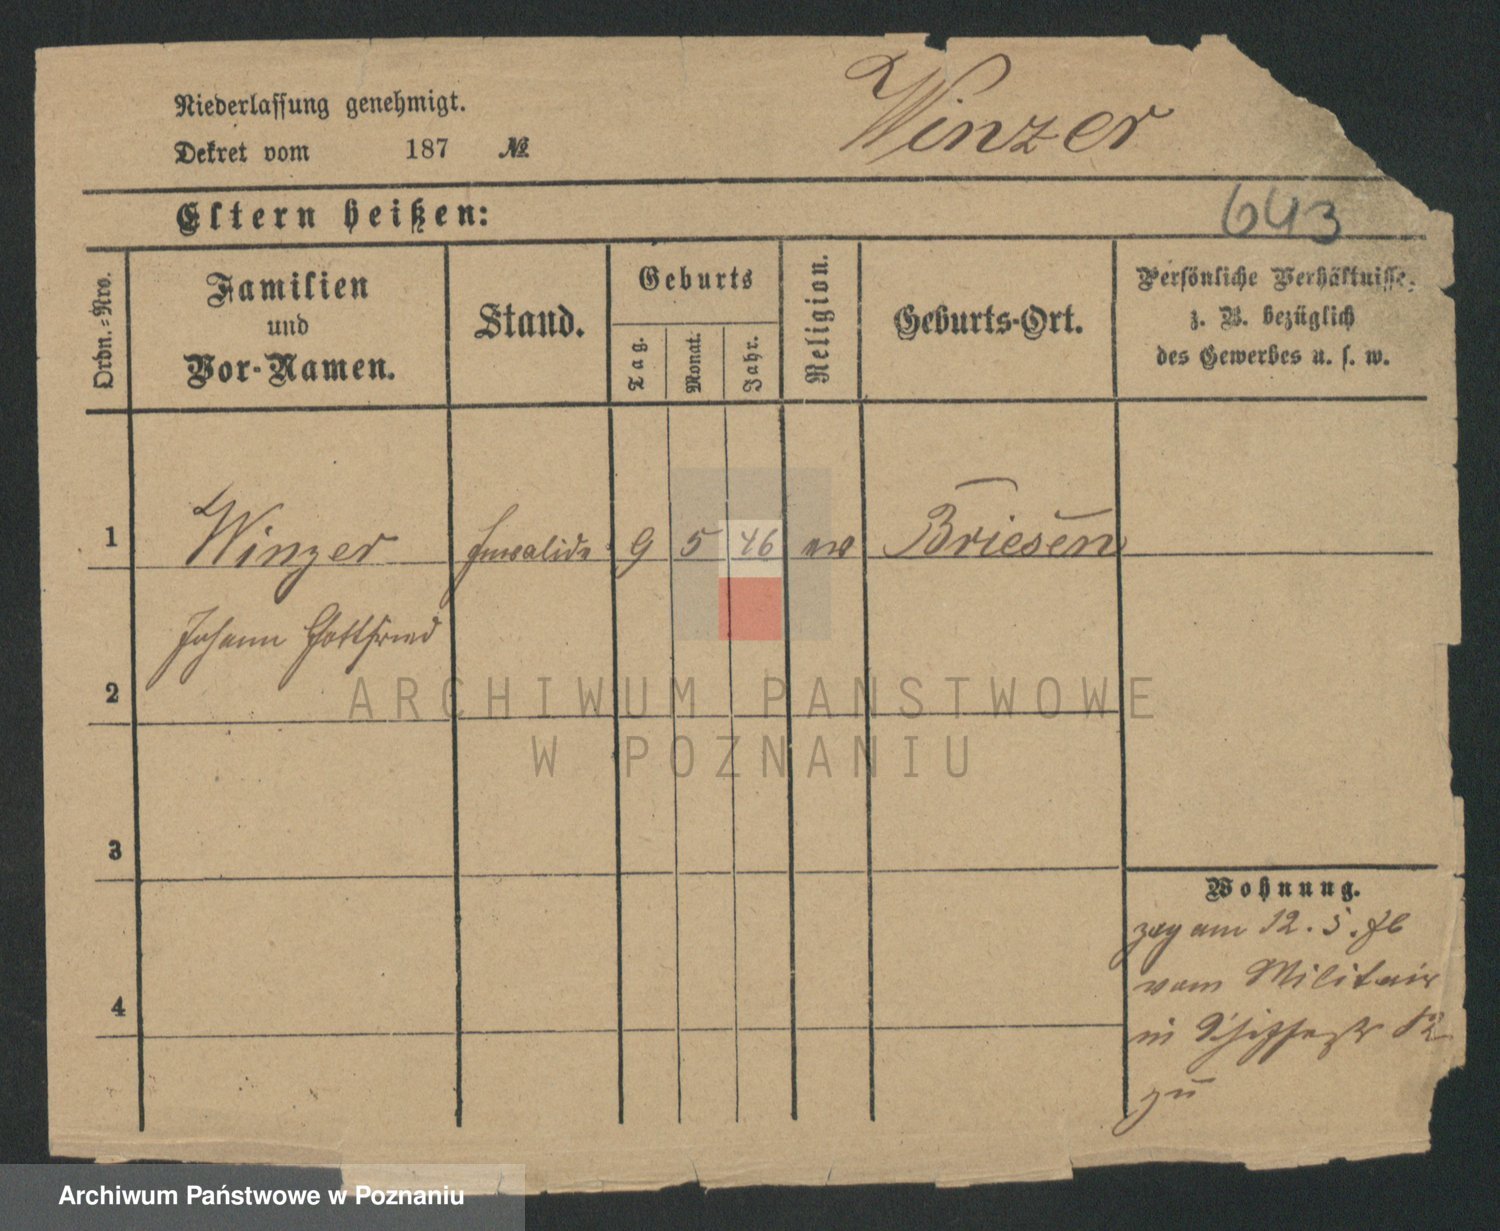 Winzer
Niederlassung genehmigt.
Dekret vom 187 №
643
Eltern heißen:
Ordn.-Nro.
Familien
und
Vor-Namen.
Stand.
Geburts
Tag.
Monat.
Jahr.
Religion.
Geburts-Ort.
Persönliche Verhältnisse,
z. B. bezüglich
des Gewerbes u. s. w.
1 Winzer Invalide 9 5 46 ev Briesen
Johann Gottfried
2
3
4
Wohnung.
zog am 12. 5. 76
vom Militair
in 12
zu
ARCHIWUM PAŃSTWOWE
W POZNANIU
Archiwum Państwowe w Poznaniu